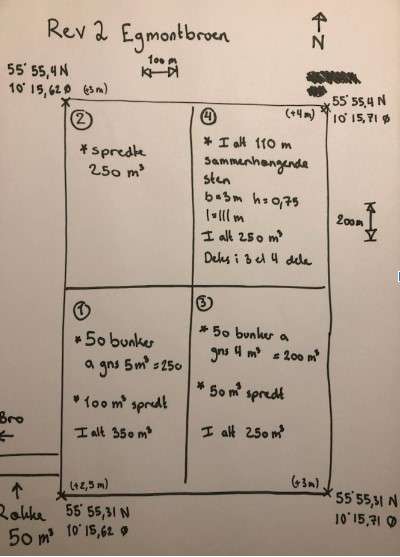 Rev 2 Egmontbroen
N
100 m
55° 55,4 N
10° 15,62 Ø
(+3m)
(+4m)
55° 55,4 N
10° 15,71 Ø
②
* spredte
250 m³
④
* I alt 110 m
sammenhængende
sten
b=3m h=0,75
l=111m
I alt 250 m³
Deles i 3 el 4 dele
200m
①
* 50 bunker
a gns 5m³=250
* 100 m³ spredt
I alt 350 m³
③
* 50 bunker a
gns 4 m³ = 200 m³
* 50 m³ spredt
I alt 250 m³
Bro
50 m³
(+2,5m)
55° 55,31 N
10° 15,62 Ø
(+3m)
55° 55,31 N
10° 15,71 Ø